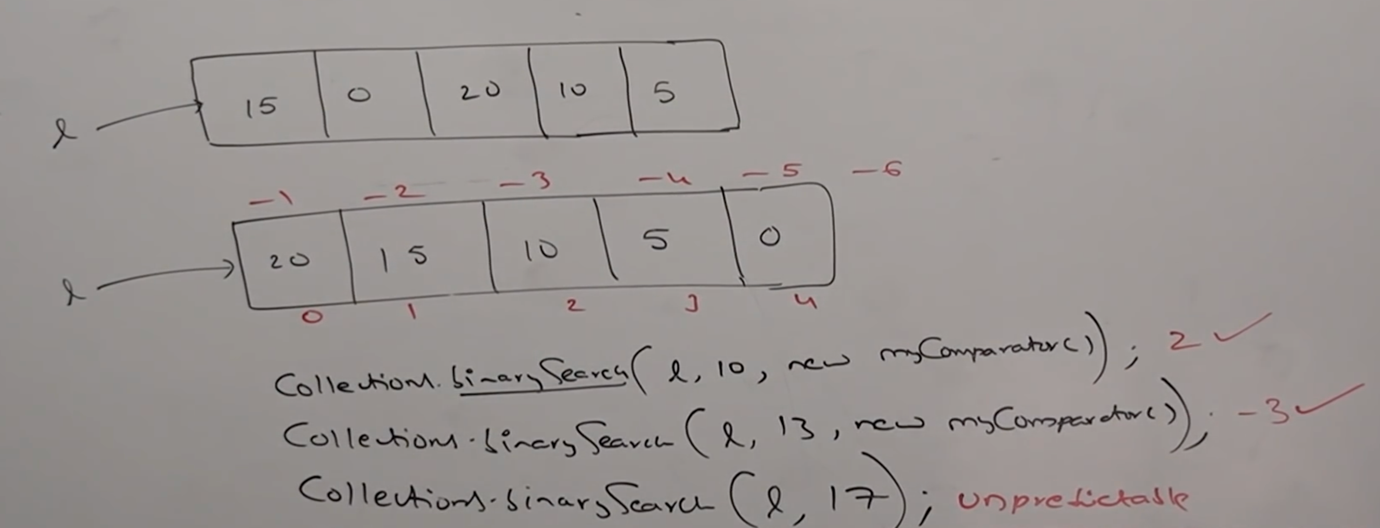 15 0 20 10 5
l
-1 -2 -3 -4 -5 -6
20 15 10 5 0
l
0 1 2 3 4
Collections.binarySearch(l, 10, new myComparator()); 2 ✓
Collections.binarySearch(l, 13, new myComparator()); -3 ✓
Collections.binarySearch(l, 17); unpredictable